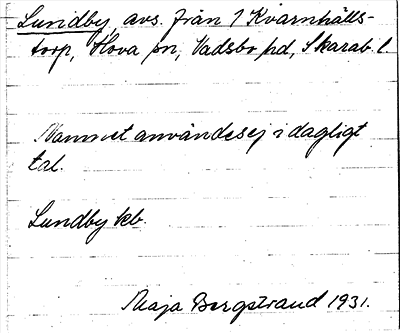 Lundby, avs. från 1 Kvarnhälls-
torp, Hova sn, Vadsbo hd, Skarab. l
Namnet användes ej i dagligt
tal.
Lundby kb.
Maja Bergstrand 1931.